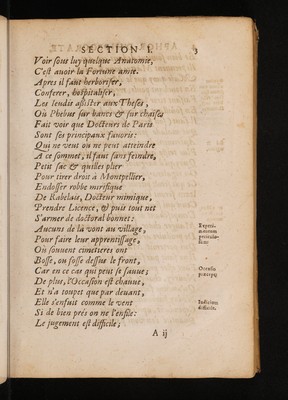 SECTION I. 3
Voir sous luy quelque Anatomie,
C'est auoir la Fortune amie.
Apres il faut herboriser,
Conferer, hospitaliser,
Les Ieudis assister aux Theses,
Où Phebus sur bancs & sur chaises
Fait voir que Docteurs de Paris
Sont ses principaux fauoris:
Qui ne veut ou ne peut atteindre
A ce sommet, il faut sans feindre,
Petit sac & quilles plier
Pour tirer droit à Montpellier,
Endosser robbe mirifique
De Rabelais, Docteur mimique,
Prendre Licence, & puis tout net
S'armer de doctoral bonnet:
Aucuns de là vont au village,
Pour faire leur apprentissage,
Où souuent cimetieres ont
Bosse, ou fosse dessus le front,
Car en ce cas qui peut se sauue;
De plus, l'Occasion est chauue,
Et n'a toupet que par deuant,
Elle s'enfuit comme le vent
Si de bien prés on ne l'enfile:
Le jugement est difficile;
Occasio
præceps
Iudicium
difficile.
A ij